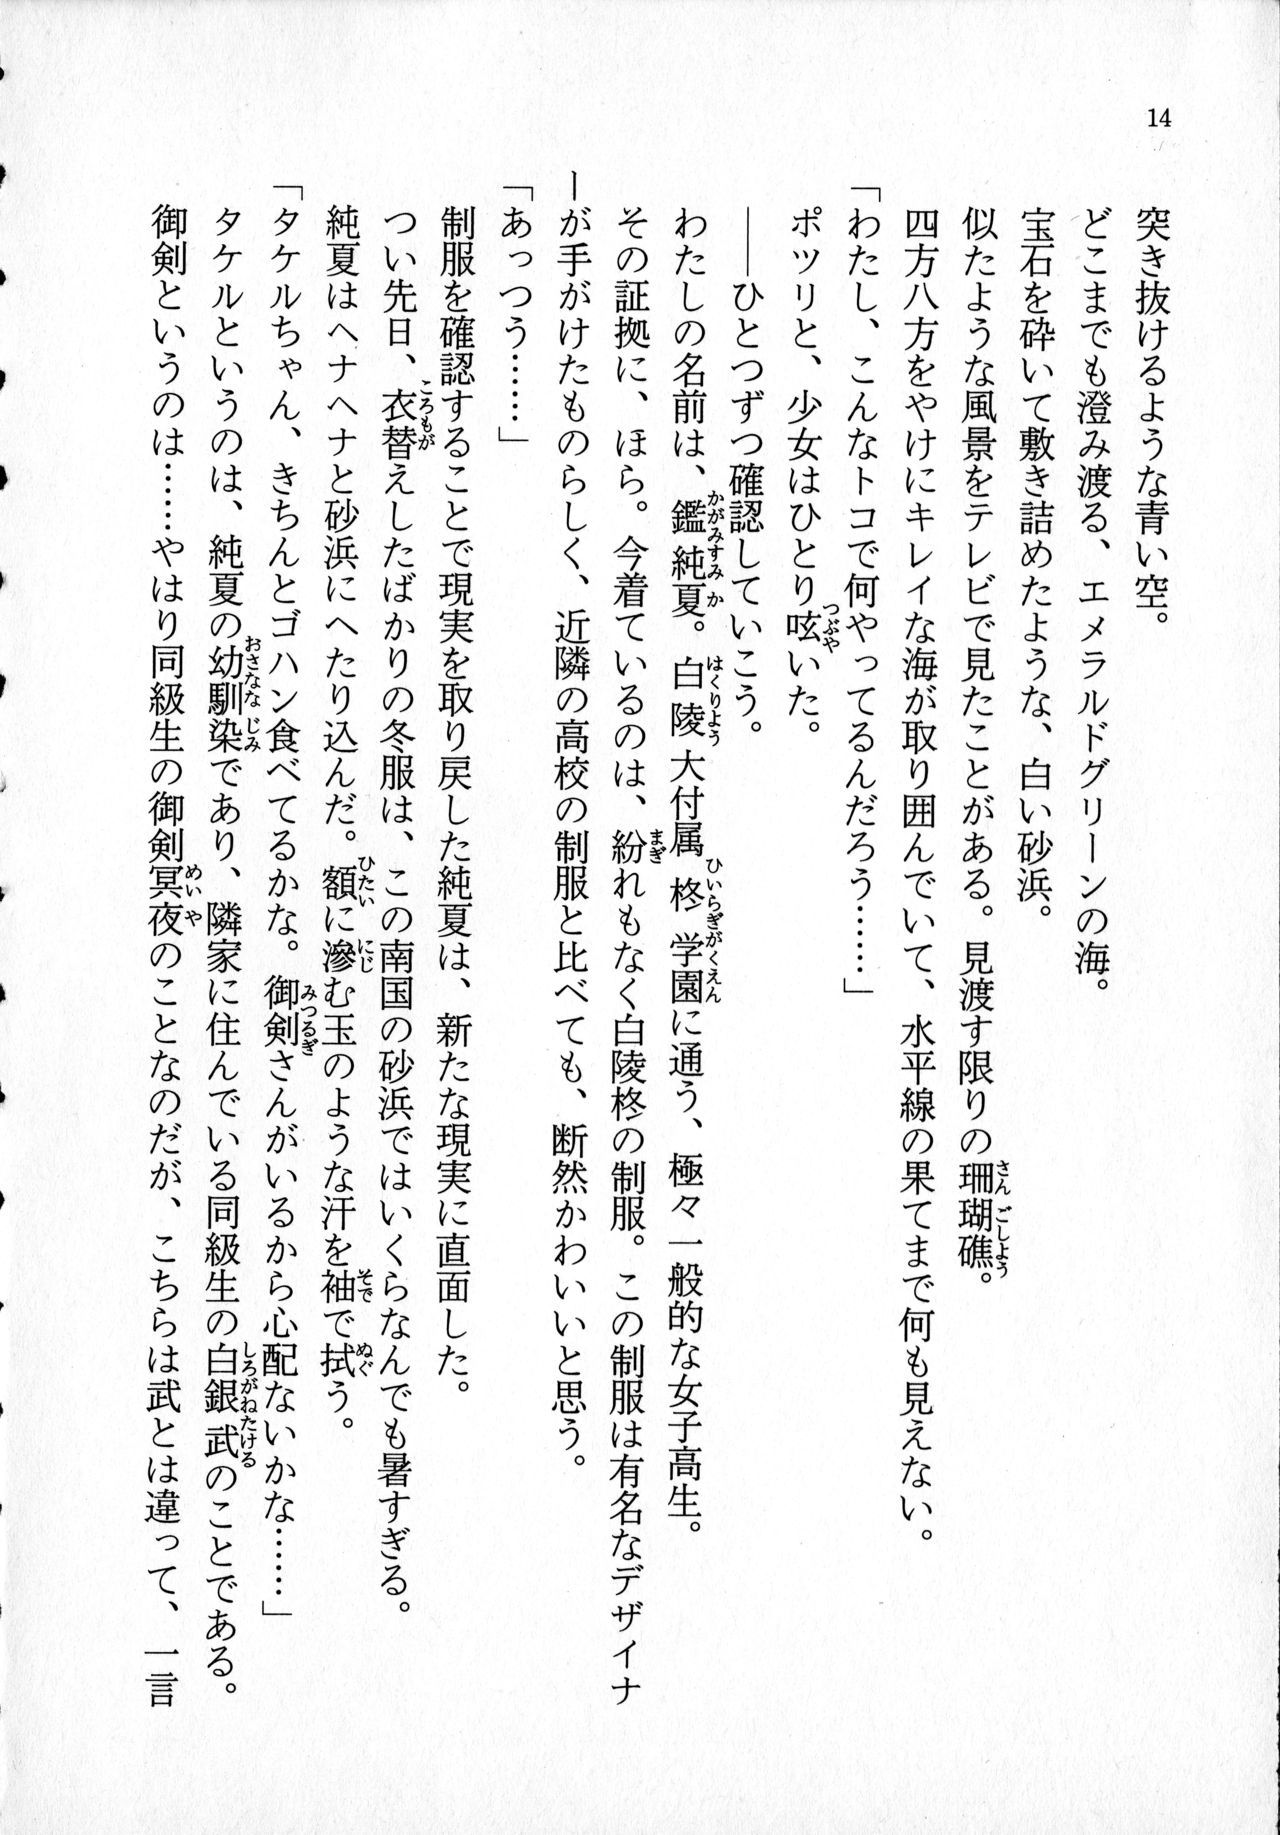 14
突き抜けるような青い空。
どこまでも澄み渡る、エメラルドグリーンの海。
宝石を砕いて敷き詰めたような、白い砂浜。
似たような風景をテレビで見たことがある。見渡す限りの珊瑚礁。
四方八方をやけにキレイな海が取り囲んでいて、水平線の果てまで何も見えない。
「わたし、こんなトコで何やってるんだろう……」
ポツリと、少女はひとり呟いた。
――ひとつずつ確認していこう。
わたしの名前は、鑑純夏。白陵大付属柊学園に通う、極々一般的な女子高生。
その証拠に、ほら。今着ているのは、紛れもなく白陵柊の制服。この制服は有名なデザイナ
ーが手がけたものらしく、近隣の高校の制服と比べても、断然かわいいと思う。
「あっつう……」
制服を確認することで現実を取り戻した純夏は、新たな現実に直面した。
つい先日、衣替えしたばかりの冬服は、この南国の砂浜ではいくらなんでも暑すぎる。
純夏はヘナヘナと砂浜にへたり込んだ。額に滲む玉のような汗を袖で拭う。
「タケルちゃん、きちんとゴハン食べてるかな。御剣さんがいるから心配ないかな……」
タケルというのは、純夏の幼馴染であり、隣家に住んでいる同級生の白銀武のことである。
御剣というのは……やはり同級生の御剣冥夜のことなのだが、こちらは武とは違って、一言